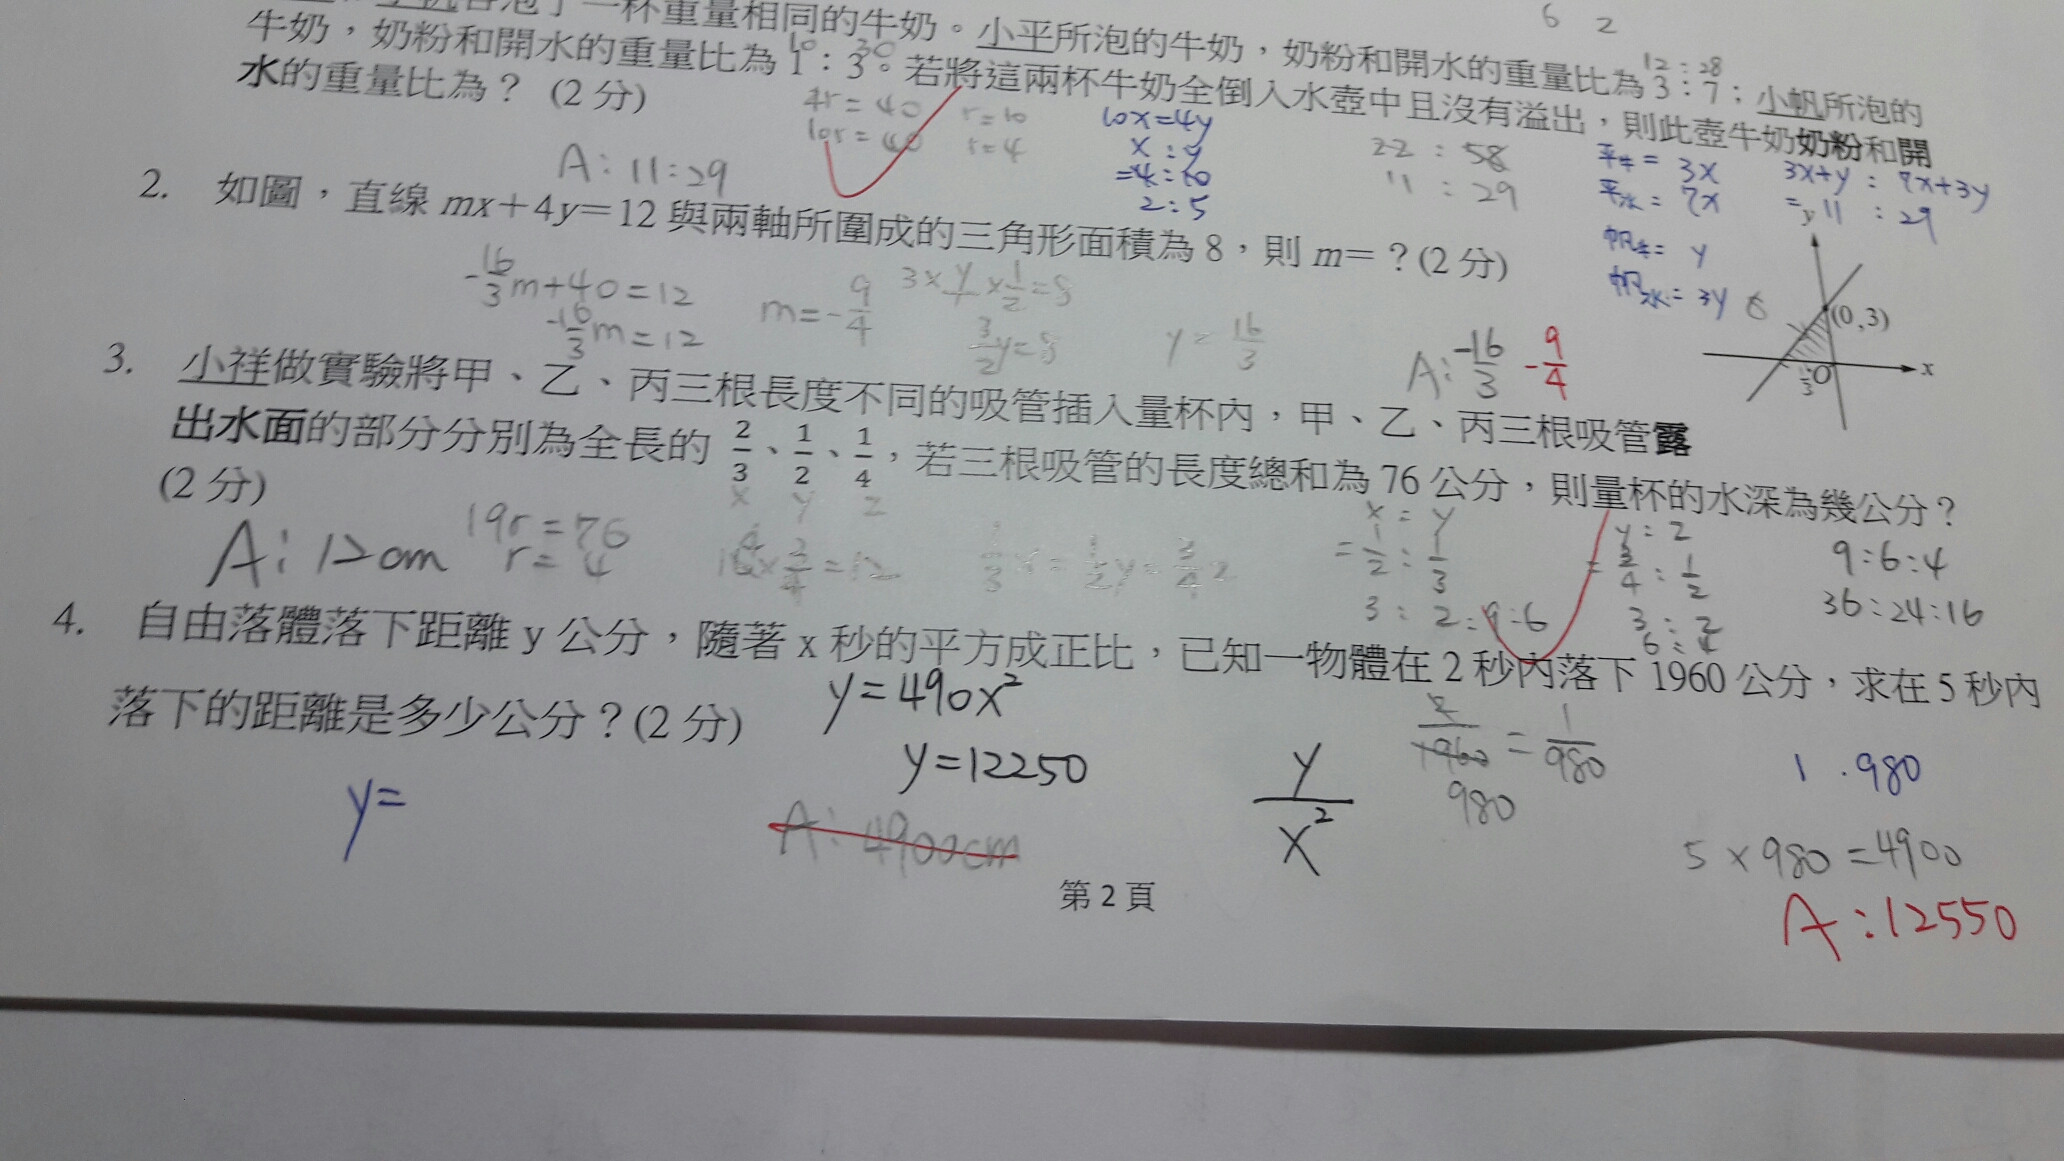 6 2
各泡了一杯重量相同的牛奶。小平所泡的牛奶，奶粉和開水的重量比為3：7；小帆所泡的
12：28
牛奶，奶粉和開水的重量比為1：3。若將這兩杯牛奶全倒入水壺中且沒有溢出，則此壺牛奶奶粉和開
10 30
水的重量比為？ (2分)
4r=40 r=10
10r=40 r=4
A：11：29
10x=4y
x：y
=4：10
2：5
22：58
11：29
平牛=3x
平水=7x
帆牛=y
帆水=3y
3x+y：7x+3y
=11：29
2. 如圖，直線 mx＋4y＝12 與兩軸所圍成的三角形面積為 8，則 m＝？(2分)
-16/3m+40=12
-16/3m=12
m=-9/4
3/2y=8
y=16/3
A：-16/3 -9/4
y
(0,3)
O
x
3. 小祥做實驗將甲、乙、丙三根長度不同的吸管插入量杯內，甲、乙、丙三根吸管露
出水面的部分分別為全長的 2/3、1/2、1/4，若三根吸管的長度總和為 76 公分，則量杯的水深為幾公分？
x y z
(2分)
A：12cm
19r=76
r=4
1/3x=1/2y=3/4z
x：y
=1/2：1/3
3：2=9：6
y：z
=3/4：1/2
3：2
6：4
9：6：4
36：24：16
4. 自由落體落下距離 y 公分，隨著 x 秒的平方成正比，已知一物體在 2 秒內落下 1960 公分，求在 5 秒內
落下的距離是多少公分？(2分)
y=490x²
y=12250
y=
A：4900cm
y/x²
2/1960=1/980
980
1．980
5×980=4900
A：12550
第 2 頁